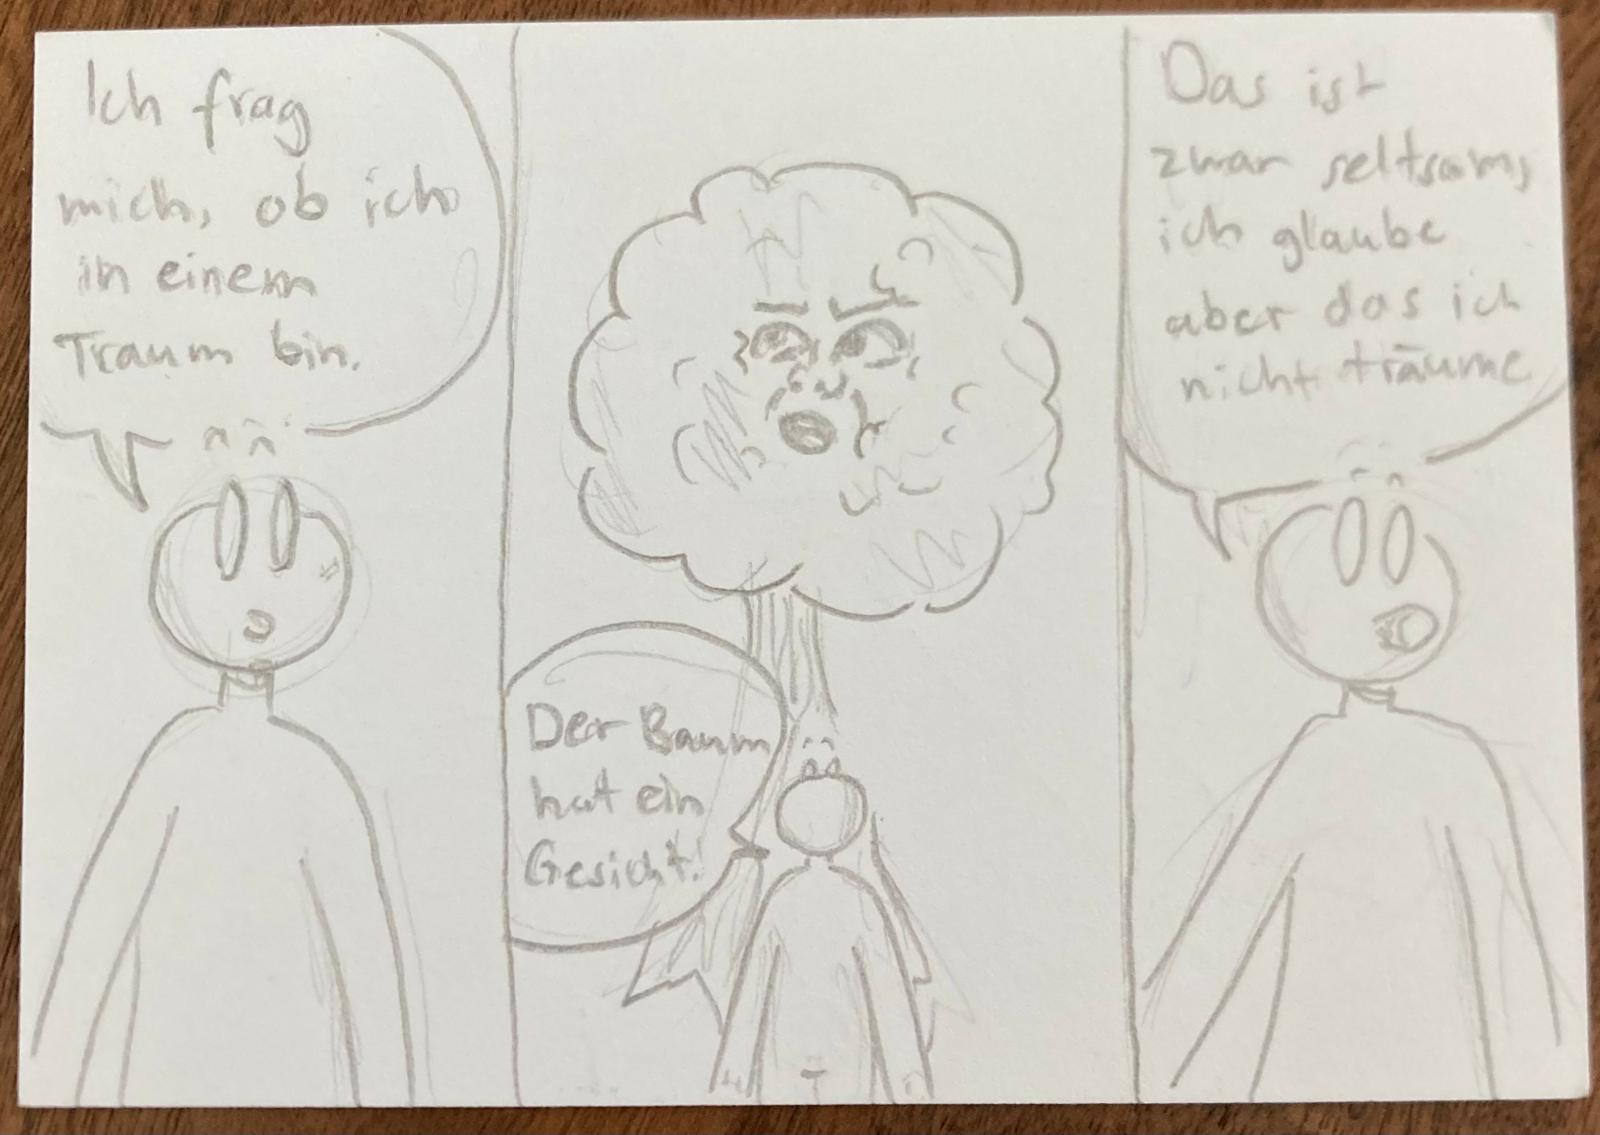 Ich frag
mich, ob ich
in einem
Traum bin.
Der Baum
hat ein
Gesicht!
Das ist
zwar seltsam,
ich glaube
aber das ich
nicht träume